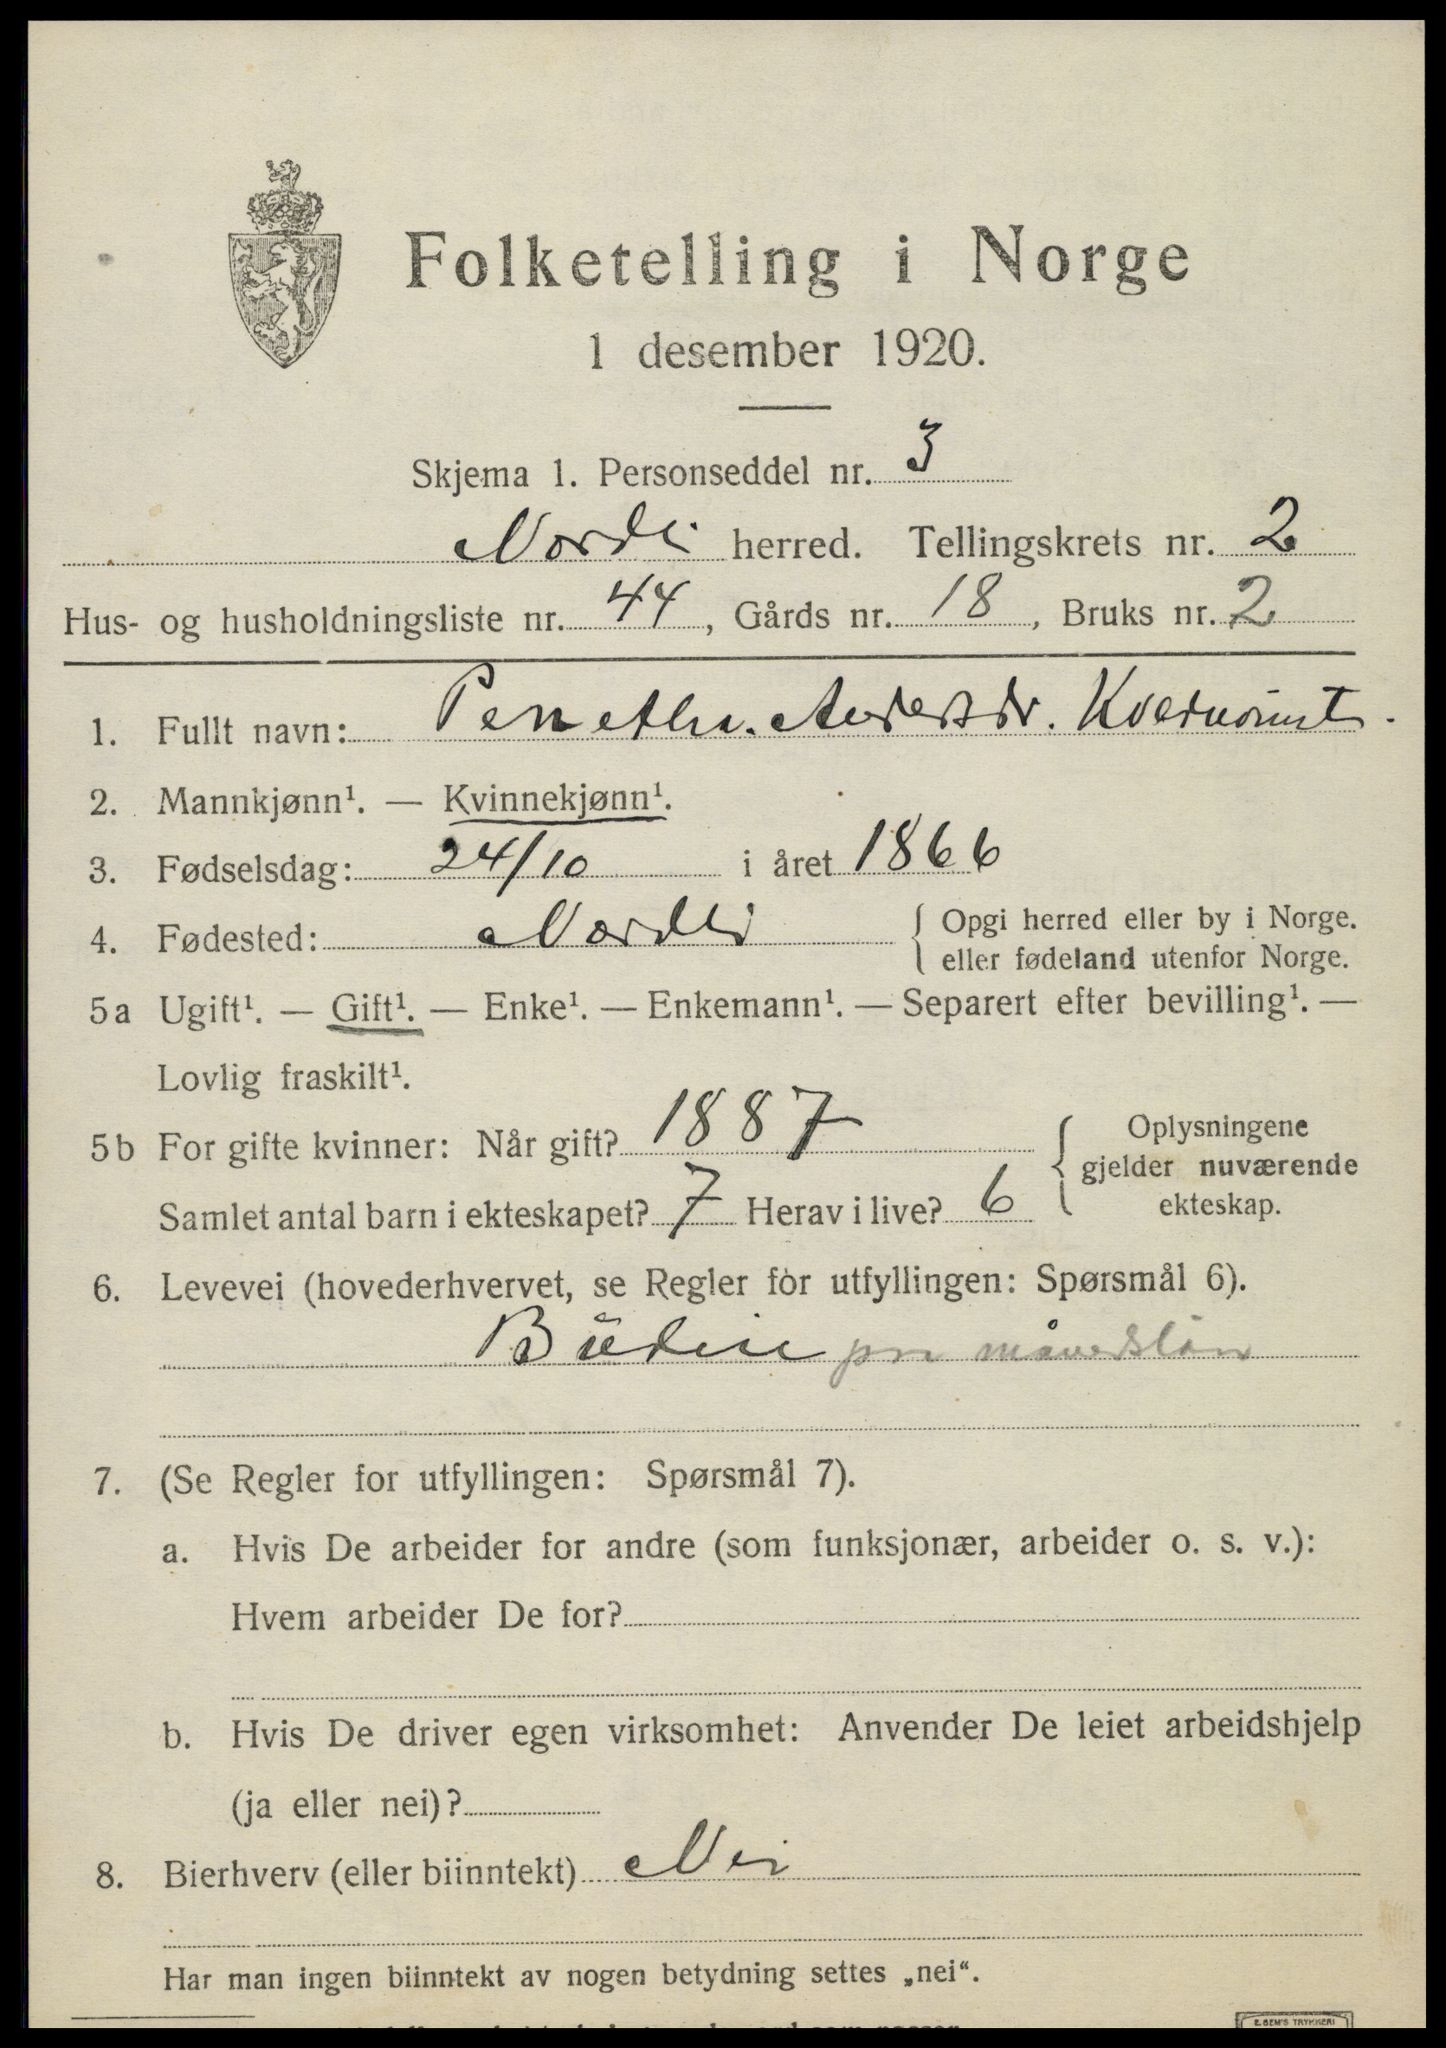 Folketelling i Norge
1 desember 1920.
Skjema 1. Personseddel nr. 3
Nordli herred. Tellingskrets nr. 2
Hus- og husholdningsliste nr. 44, Gårds nr. 18, Bruks nr. 2
1. Fullt navn: Andersdr.
2. Mannkjønn¹. — Kvinnekjønn¹.
3. Fødselsdag: 24/10 i året 1866
4. Fødested: Nordli { Opgi herred eller by i Norge.
eller fødeland utenfor Norge.
5a Ugift¹. — Gift¹. — Enke¹. — Enkemann¹. — Separert efter bevilling¹. —
Lovlig fraskilt¹.
5b For gifte kvinner: Når gift? 1887 { Oplysningene
gjelder nuværende
ekteskap.
Samlet antal barn i ekteskapet? 7 Herav i live? 6
6. Levevei (hovederhvervet, se Regler for utfyllingen: Spørsmål 6).
Budeie
7. (Se Regler for utfyllingen: Spørsmål 7).
a. Hvis De arbeider for andre (som funksjonær, arbeider o. s. v.):
Hvem arbeider De for?
b. Hvis De driver egen virksomhet: Anvender De leiet arbeidshjelp
(ja eller nei)?
8. Bierhverv (eller biinntekt) Nei
Har man ingen biinntekt av nogen betydning settes „nei“.
E. SEM'S TRYKKERI